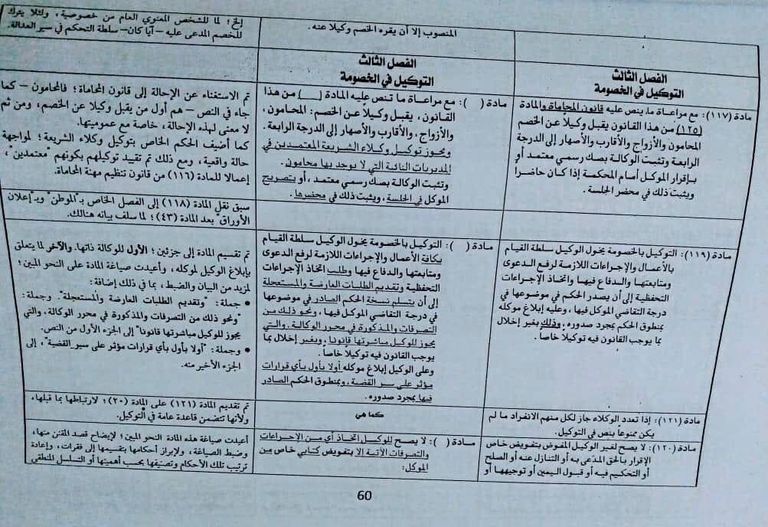 المنصوب إلا أن يقره الخصم وكيلا عنه.
إلخ؛ لما للشخص المعنوي العام من خصوصية، ولئلا يترك
للخصم المدعى عليه – أيا كان – سلطة التحكم في سير العدالة.
الفصل الثالث
التوكيل في الخصومة
مادة (١١٧): مع مراعاة ما ينص عليه قانون المحاماة والمادة
(١٢٥) من هذا القانون يقبل وكيلاً عن الخصم
المحامون والأزواج والأقارب والأصهار إلى الدرجة
الرابعة وتثبت الوكالة بصك رسمي معتمد أو
بإقرار الموكل أمام المحكمة إذا كان حاضراً
ويثبت ذلك في محضر الجلسة.
الفصل الثالث
التوكيل في الخصومة
مادة ( ): مع مراعاة ما تنص عليه المادة (__) من هذا
القانون، يقبل وكيلاً عن الخصم: المحامون،
والأزواج، والأقارب والأصهار إلى الدرجة الرابعة.
ويجوز توكيل وكلاء الشريعة المعتمدين في
المديريات النائية التي لا يوجد بها محامون.
وتثبت الوكالة بصك رسمي معتمد، أو بتصريح
الموكل في الجلسة، ويثبت ذلك في محضرها.
تم الاستغناء عن الإحالة إلى قانون المحاماة؛ فالمحامون – كما
جاء في النص – هم أول من يقبل وكيلا عن الخصم، ومن ثم
لا معنى لهذه الإحالة، خاصة مع عموميتها.
كما أضيف الحكم الخاص بتوكيل وكلاء الشريعة؛ لمواجهة
حالة واقعية، ومع ذلك تم تقييد توكيلهم بكونهم "معتمدين"،
إعمالا للمادة (١١٦) من قانون تنظيم مهنة المحاماة.
سبق نقل المادة (١١٨) إلى الفصل الخاص بـ"الموطن" وبـ"إعلان
الأوراق" بعد المادة (٤٣)؛ لما سلف بيانه هنالك.
مادة (١١٩): التوكيل بالخصومة يخول الوكيل سلطة القيام
بالأعمال والإجراءات اللازمة لرفع الدعوى
ومتابعتها والدفاع فيها واتخاذ الإجراءات
التحفظية إلى أن يصدر الحكم في موضوعها في
درجة التقاضي الموكل فيها، وعليه إبلاغ موكله
بمنطوق الحكم بمجرد صدوره، وذلك بغير إخلال
بما يوجب القانون فيه توكيلاً خاصاً.
مادة ( ): التوكيل بالخصومة يخول الوكيل سلطة القيام
بكافة الأعمال والإجراءات اللازمة لرفع الدعوى
ومتابعتها والدفاع فيها وطلب اتخاذ الإجراءات
التحفظية وتقديم الطلبات العارضة والمستعجلة
إلى أن يتسلم نسخة الحكم الصادر في موضوعها
في درجة التقاضي الموكل فيها، ونحو ذلك من
التصرفات والمذكورة في محرر الوكالة، والتي
يجوز للوكيل مباشرتها قانوناً وبغير إخلال بما
يوجب القانون فيه توكيلاً خاصاً.
وعلى الوكيل إبلاغ موكله أولا بأول بأي قرارات
مؤثر على سير القضية، وبمنطوق الحكم الصادر
فيها بمجرد صدوره.
تم تقسيم المادة إلى جزئين؛ الأول للوكالة ذاتها. والآخر لما يتعلق
بإبلاغ الوكيل لموكله، وأعيدت صياغة المادة على النحو المبين؛
لمزيد من البيان والضبط، بما في ذلك إضافة:
• جملة: "وتقديم الطلبات العارضة والمستعجلة". وجملة:
"ونحو ذلك من التصرفات والمذكورة في محرر الوكالة، والتي
يجوز للوكيل مباشرتها قانونا" إلى الجزء الأول من النص.
• وجملة: "أولا بأول بأي قرارات مؤثر على سير القضية"، إلى
الجزء الأخير منه.
مادة (١٢١): إذا تعدد الوكلاء جاز لكل منهم الانفراد ما لم
يكن ممنوعاً بنص في التوكيل.
كما هي
تم تقديم المادة (١٢١) على المادة (٢٠)؛ لارتباطها بما قبلها،
ولأنها تتضمن قاعدة عامة في التوكيل.
مادة (١٢٠): لا يصح لغير الوكيل المفوض بتفويض خاص
الإقرار بالحق المدعى به أو التنازل عنه أو الصلح
أو التحكيم فيه أو قبول اليمين أو توجيهها أو
مادة ( ): لا يصح للوكيل اتخاذ أي من الإجراءات
والتصرفات الآتية إلا بتفويض كتابي خاص من
الموكل:
أعيدت صياغة هذه المادة النحو المبين؛ لإيضاح قصد المقنن منها،
وضبط الصياغة، ولإبراز أحكامها بتقسيمها إلى فقرات، وإعادة
ترتيب تلك الأحكام وتصنيفها بحسب أهميتها أو التسلسل المنطقي
60